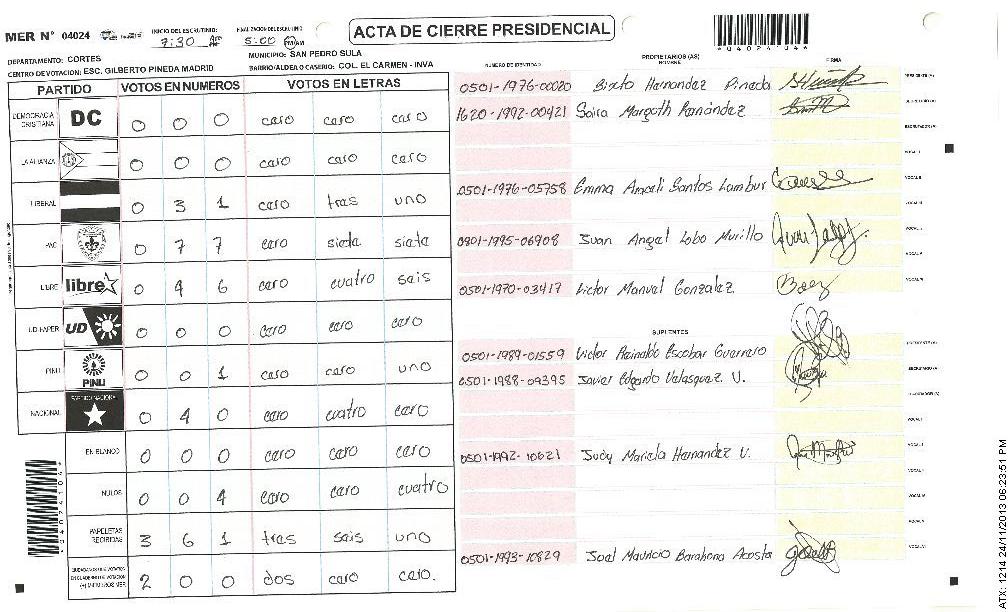 MER N° 04024
INICIO DEL ESCRUTINIO: 7:30
FINALIZACION DEL ESCRUTINIO 5:00 PM AM
ACTA DE CIERRE PRESIDENCIAL
04024104
DEPARTAMENTO: CORTES
MUNICIPIO: SAN PEDRO SULA
CENTRO DE VOTACION: ESC. GILBERTO PINEDA MADRID
BARRIO/ALDEA O CASERIO: COL. EL CARMEN - INVA
PARTIDO VOTOS EN NUMEROS VOTOS EN LETRAS
DEMOCRACIA CRISTIANA DC 0 0 0 cero cero cero
LA ALIANZA 0 0 0 cero cero cero
LIBERAL 0 3 1 cero tres uno
PAC 0 7 7 cero siete siete
LIBRE libre 0 4 6 cero cuatro seis
UD-FAPER UD 0 0 0 cero cero cero
PINU PINU 0 0 1 cero cero uno
NACIONAL PARTIDO NACIONAL 0 4 0 cero cuatro cero
EN BLANCO 0 0 0 cero cero cero
NULOS 0 0 4 cero cero cuatro
PAPELETAS RECIBIDAS 3 6 1 tres seis uno
CIUDADANOS QUE VOTARON EN CUADERNO DE VOTACION (+) MIEMBROS MER 2 0 0 dos cero cero.
04024104
NUMERO DE IDENTIDAD PROPIETARIOS (AS) NOMBRE FIRMA
0501-1976-00020 Hernandez Pineda PRESIDENTE (A)
1620-1992-00421 Saira Margoth Fernández SECRETARIO (A)
ESCRUTADOR (A)
VOCAL I
0501-1976-05758 Emma Araceli Santos Lambur VOCAL II
VOCAL III
0801-1995-06908 Juan Angel Lobo Murillo VOCAL IV
VOCAL V
0501-1970-03417 Victor Manuel Gonzalez VOCAL VI
SUPLENTES
0501-1989-01559 Victor Reinaldo Escobar Guerrero PRESIDENTE (A)
0501-1988-09395 Javier Edgardo Velasquez V. SECRETARIO (A)
ESCRUTADOR (A)
VOCAL I
0501-1992-10621 Judy Mariela Hernandez V. VOCAL II
VOCAL III
VOCAL IV
VOCAL V
0501-1993-10829 Joel Mauricio Barahona Acosta VOCAL VI
ATX: 1214 24/11/2013 06:23:51 PM